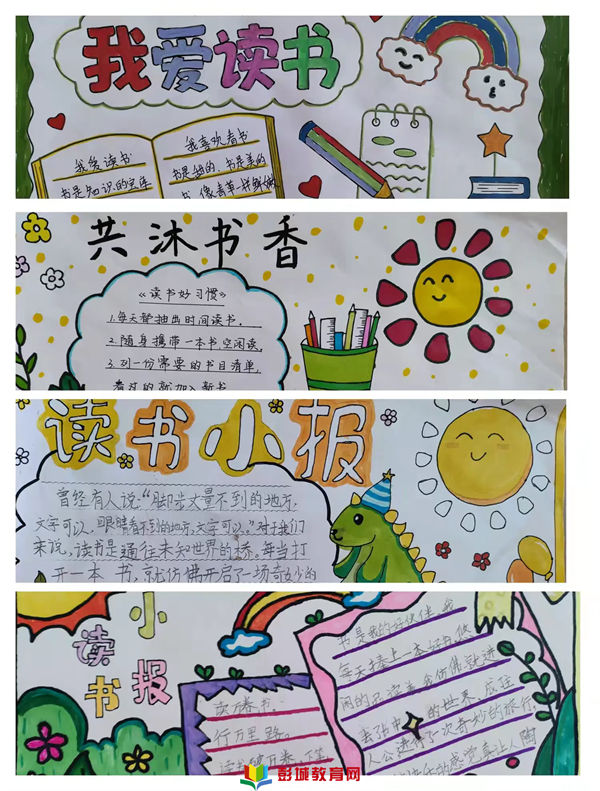 我爱读书
我爱读书
书是知识的宝库
我喜欢看书
书是甜的，书是美的
书，像青草一样鲜嫩
共沐书香
《读书好习惯》
1.每天都抽出时间读书。
2.随身携带一本书空闲读
3.列一份需要的书目清单，
看过的就加入新书
读书小报
曾经有人说：“脚步丈量不到的地方，
文字可以，眼睛看不到的地方，文字可以。”对于我们
来说，读书是通往未知世界的桥。每当打
开一本书，就仿佛开启了一场奇妙的
读书小报
读万卷书
行万里路。
读书破万卷，下笔
书是我的好伙伴，我
每天捧上一本好书，悠
闲的品读着，我仿佛就进
去书中的世界，在往
人公进行了一次奇妙的旅行，
的感觉真让人陶
彭城教育网